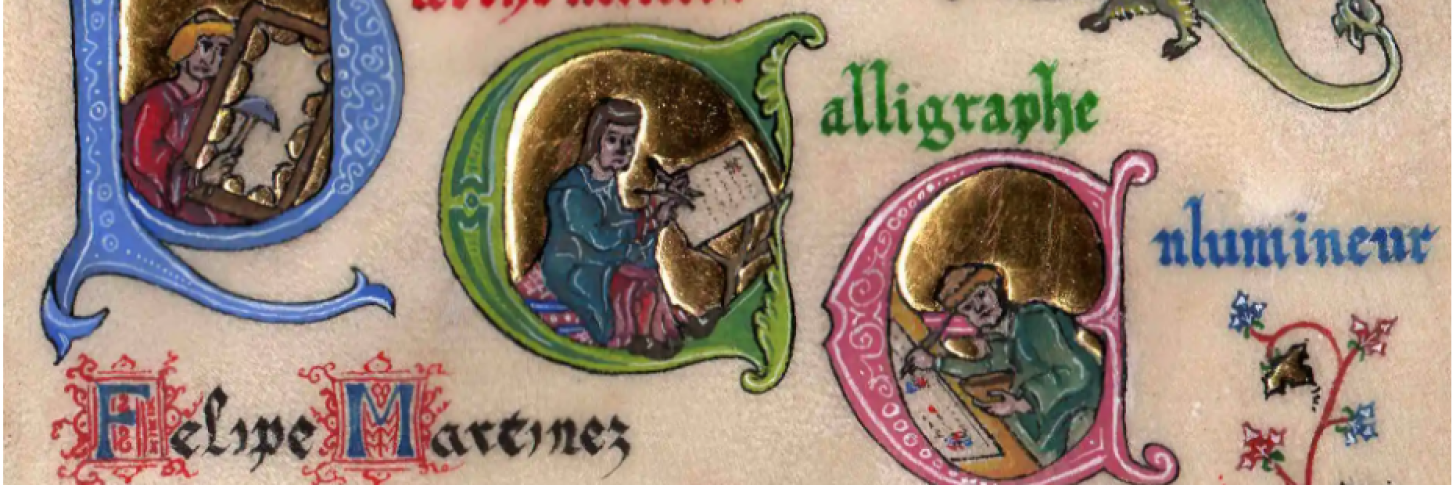 Calligraphe
Enlumineur
Felipe Martinez